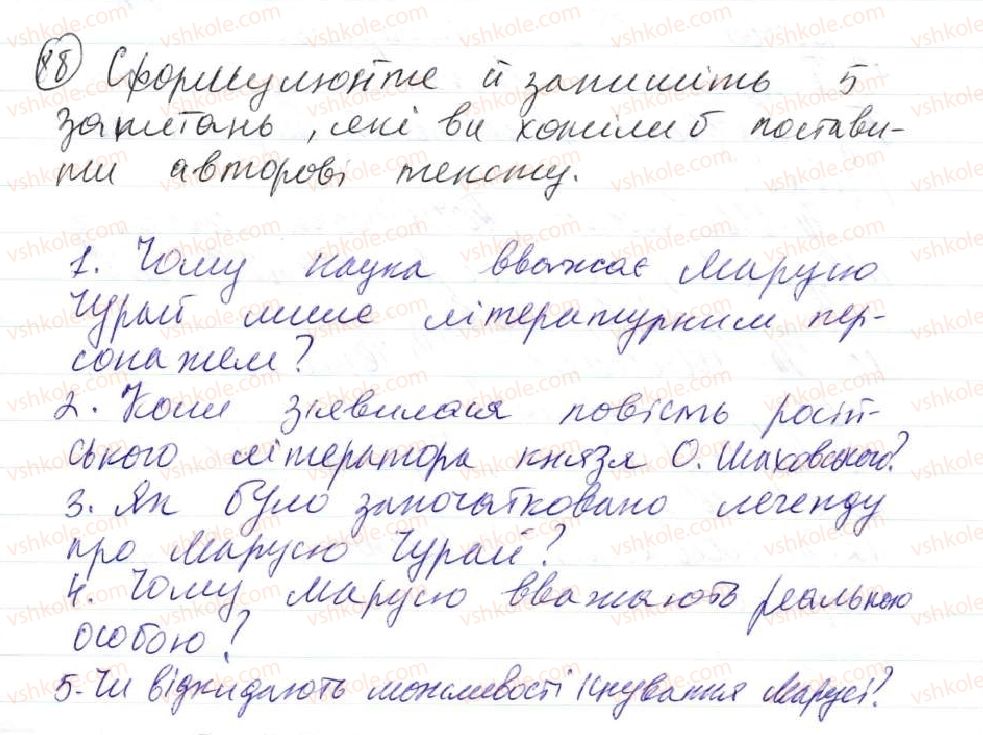 18 Сформулюйте й запишіть 5
запитань, які ви хотіли б постави-
ти авторові тексту.
1. Чому наука вважає Марусю
Чурай лише літературним пер-
сонажем?
2. Коли з'явилася повість росій-
ського літератора князя О. Шаховського?
3. Як було започатковано легенду
про Марусю Чурай?
4. Чому Марусю вважають реальною
особою?
5. Чи відкидають можливості існування Марусі?
vshkole.com